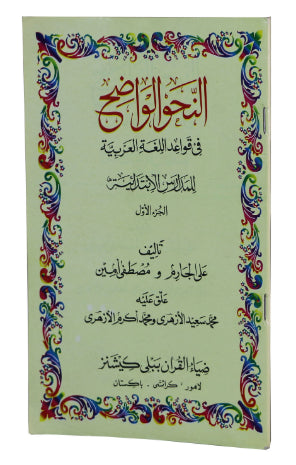 النحو الواضح
في قواعد اللغة العربية
للمدارس الابتدائية
الجزء الأول
تأليف
علي الجارم و مصطفى أمين
علق عليه
محمد سعيد الأزهري ومحمد أكرم الأزهري
ضياء القرآن پبلی کیشنز
لاهور - كراتشي - باكستان